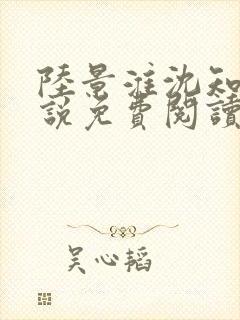 陸景淮沈知
說免費閱讀
吴心韬